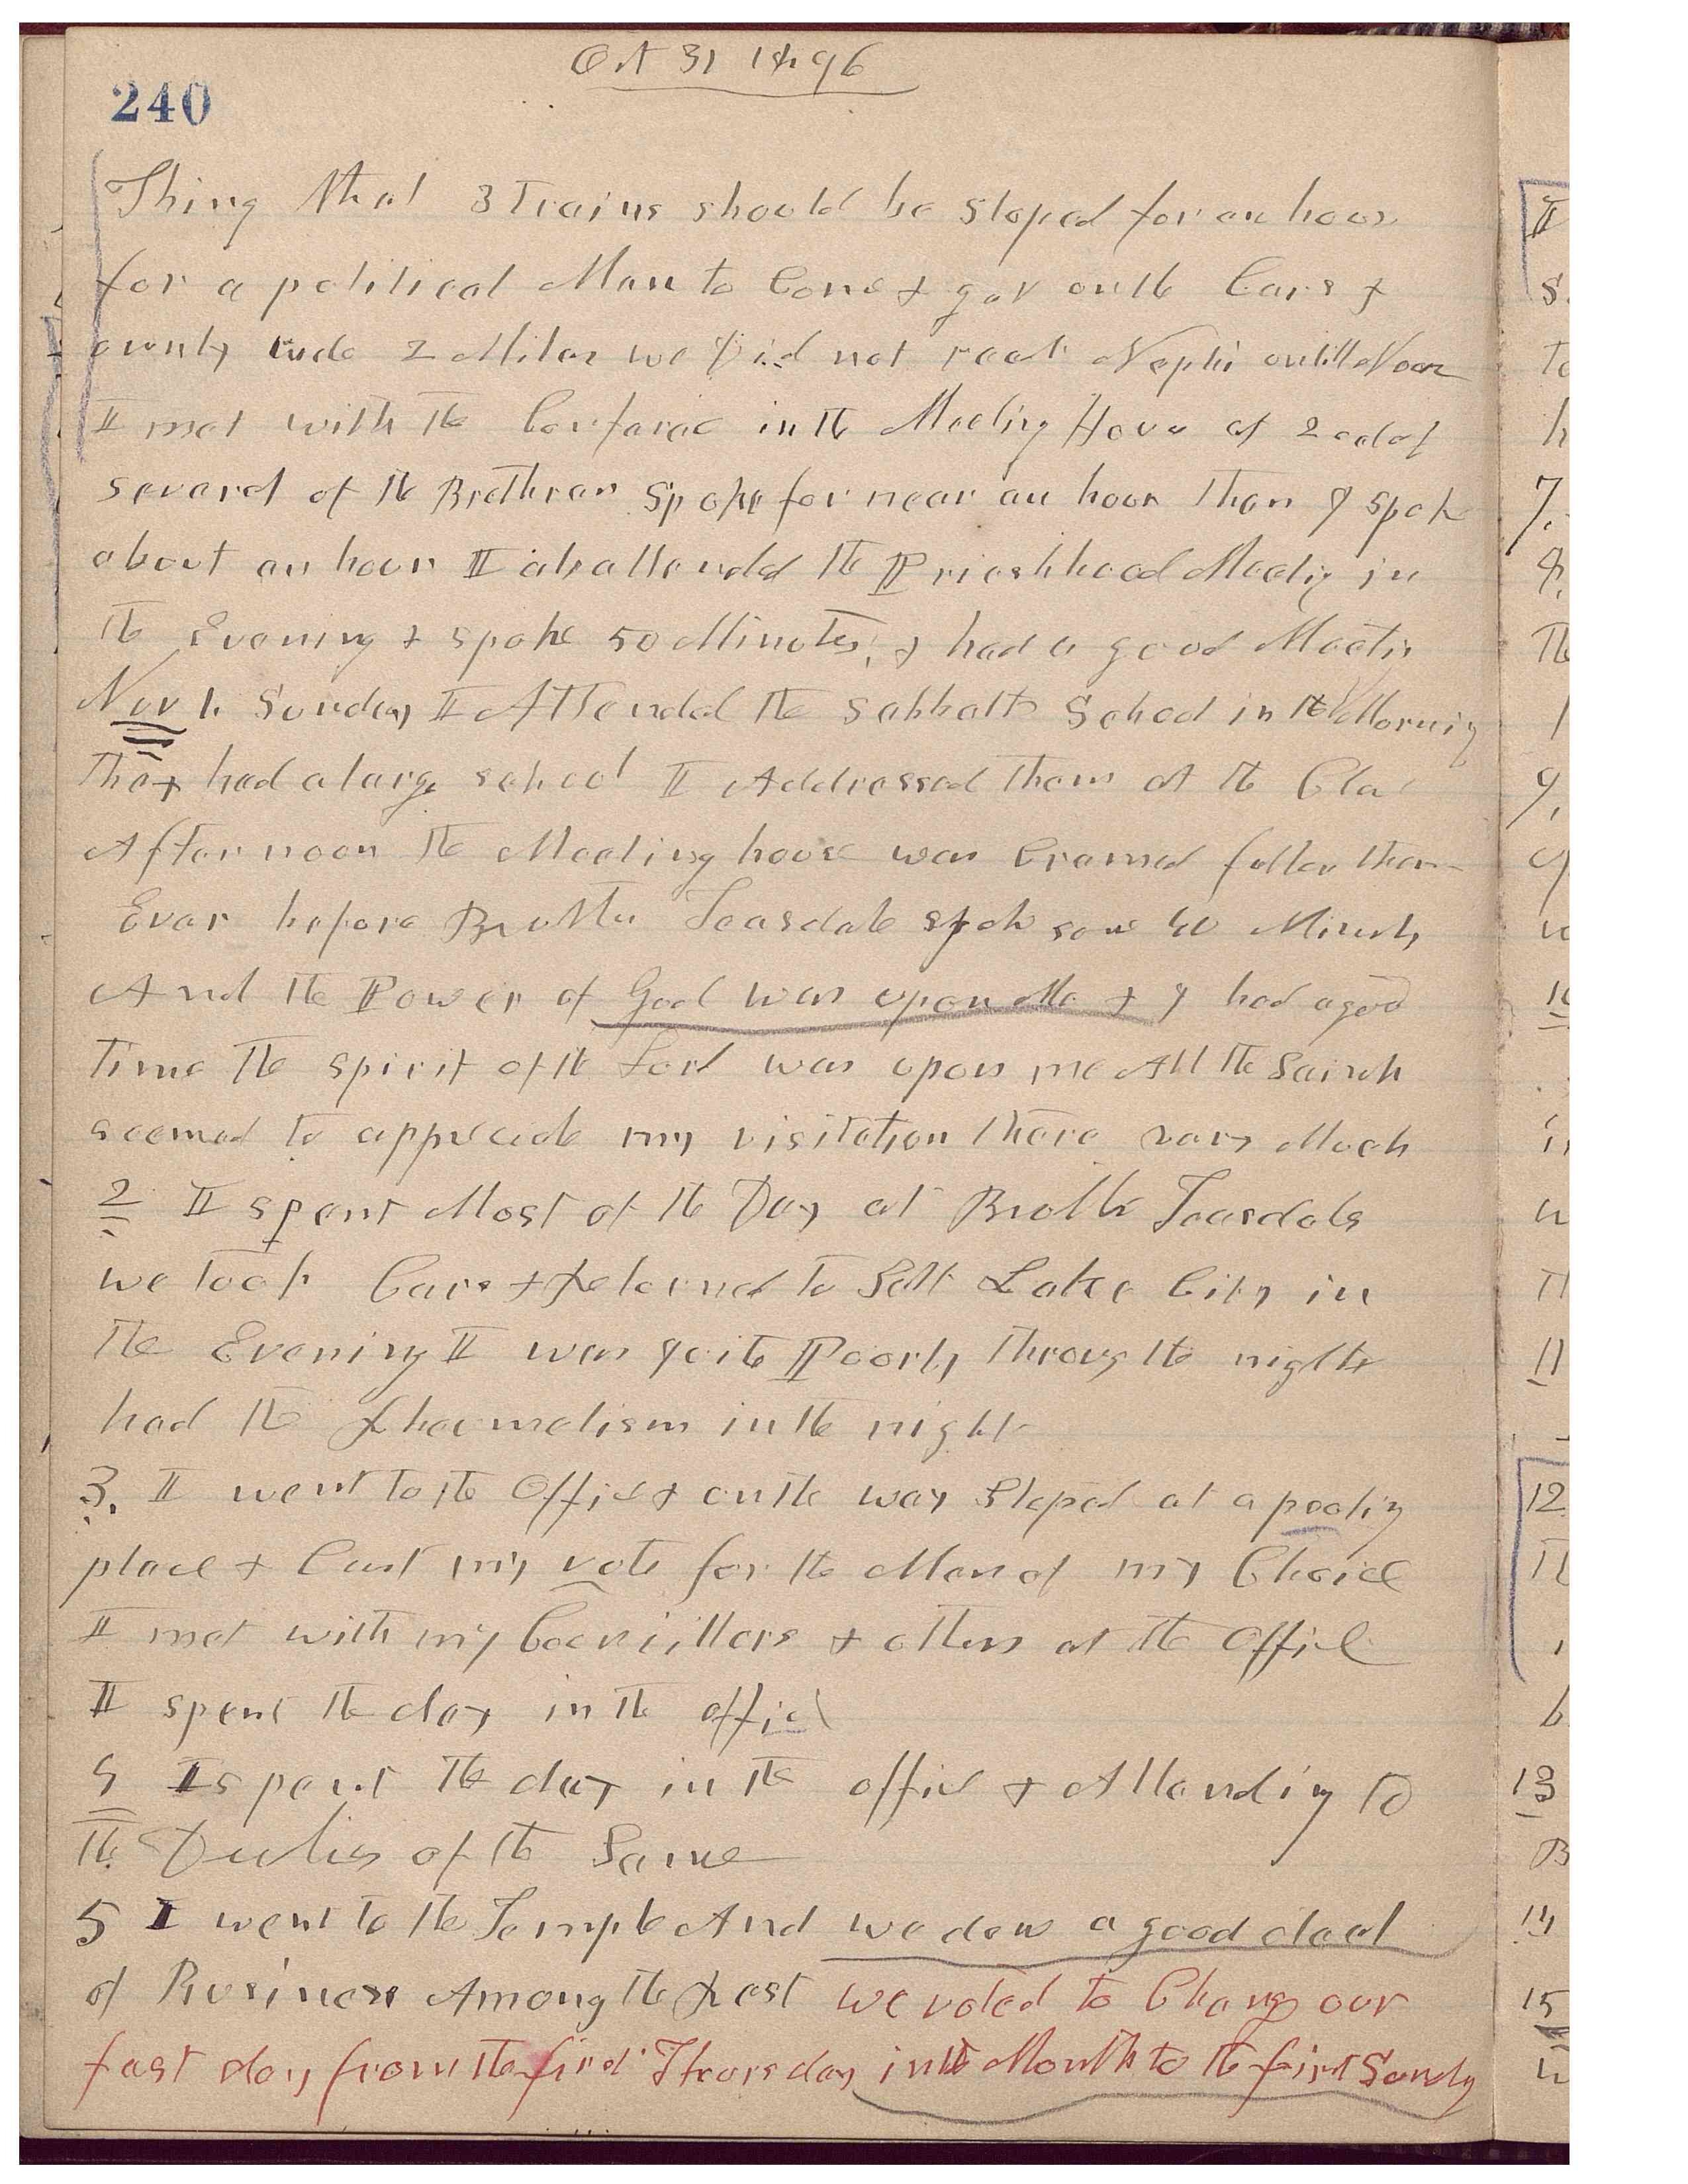 Oct 31 1896
240
Thing that 3 Trains should be stoped for an hour
for a political Man to Come & get on the Cars &
ownly ride 2 Miles we did not reach Nephi untill Noon
I met with the Conferance in the Meeting House at 2 oclok
several of the Brethren Spoke for near an hour Then I spok
about an hour I also attended the Priesthood Meeting in
the Evening & spoke 50 Minutes, & had a good Meetin
Nov 1. Sunday I Attended the Sabbath School in the Morning
They had a large school I Addressed them at the Clo
Afternoon the Meeting house was Cramed fuller then
Ever before Brother Teasdale spok some 40 Minuts
And the Power of God was upon Me & I had a good
time the spirit of the Lord was upon me All the Saints
seemed to appreciate my visitation there very Much
2 I spent Most of the Day at Brother Teasdals
we took Cars & Returned to Salt Lake City in
the Evening I was quite Poorly through the night
had the Rheumatism in the night
3. I went to the Office & on the way Stoped at a pooling
place & Cast my vote for the Men of my Choice
I met with my Councillors & others at the Office
I spent the day in the office
4 I spent the day in the office & Attending to
the Duties of the Same
5 I went to the Temple And we done a good deal
of Business Among the Rest we voted to Change our
fast day from the first Thursday in the Month to the first Sunday
I
7.
8.
9,
10
11
12
13
14
15